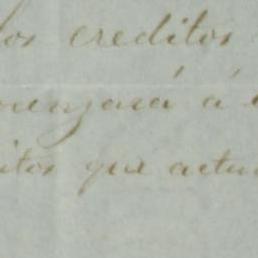 los creditos
menzará á
itos que actu